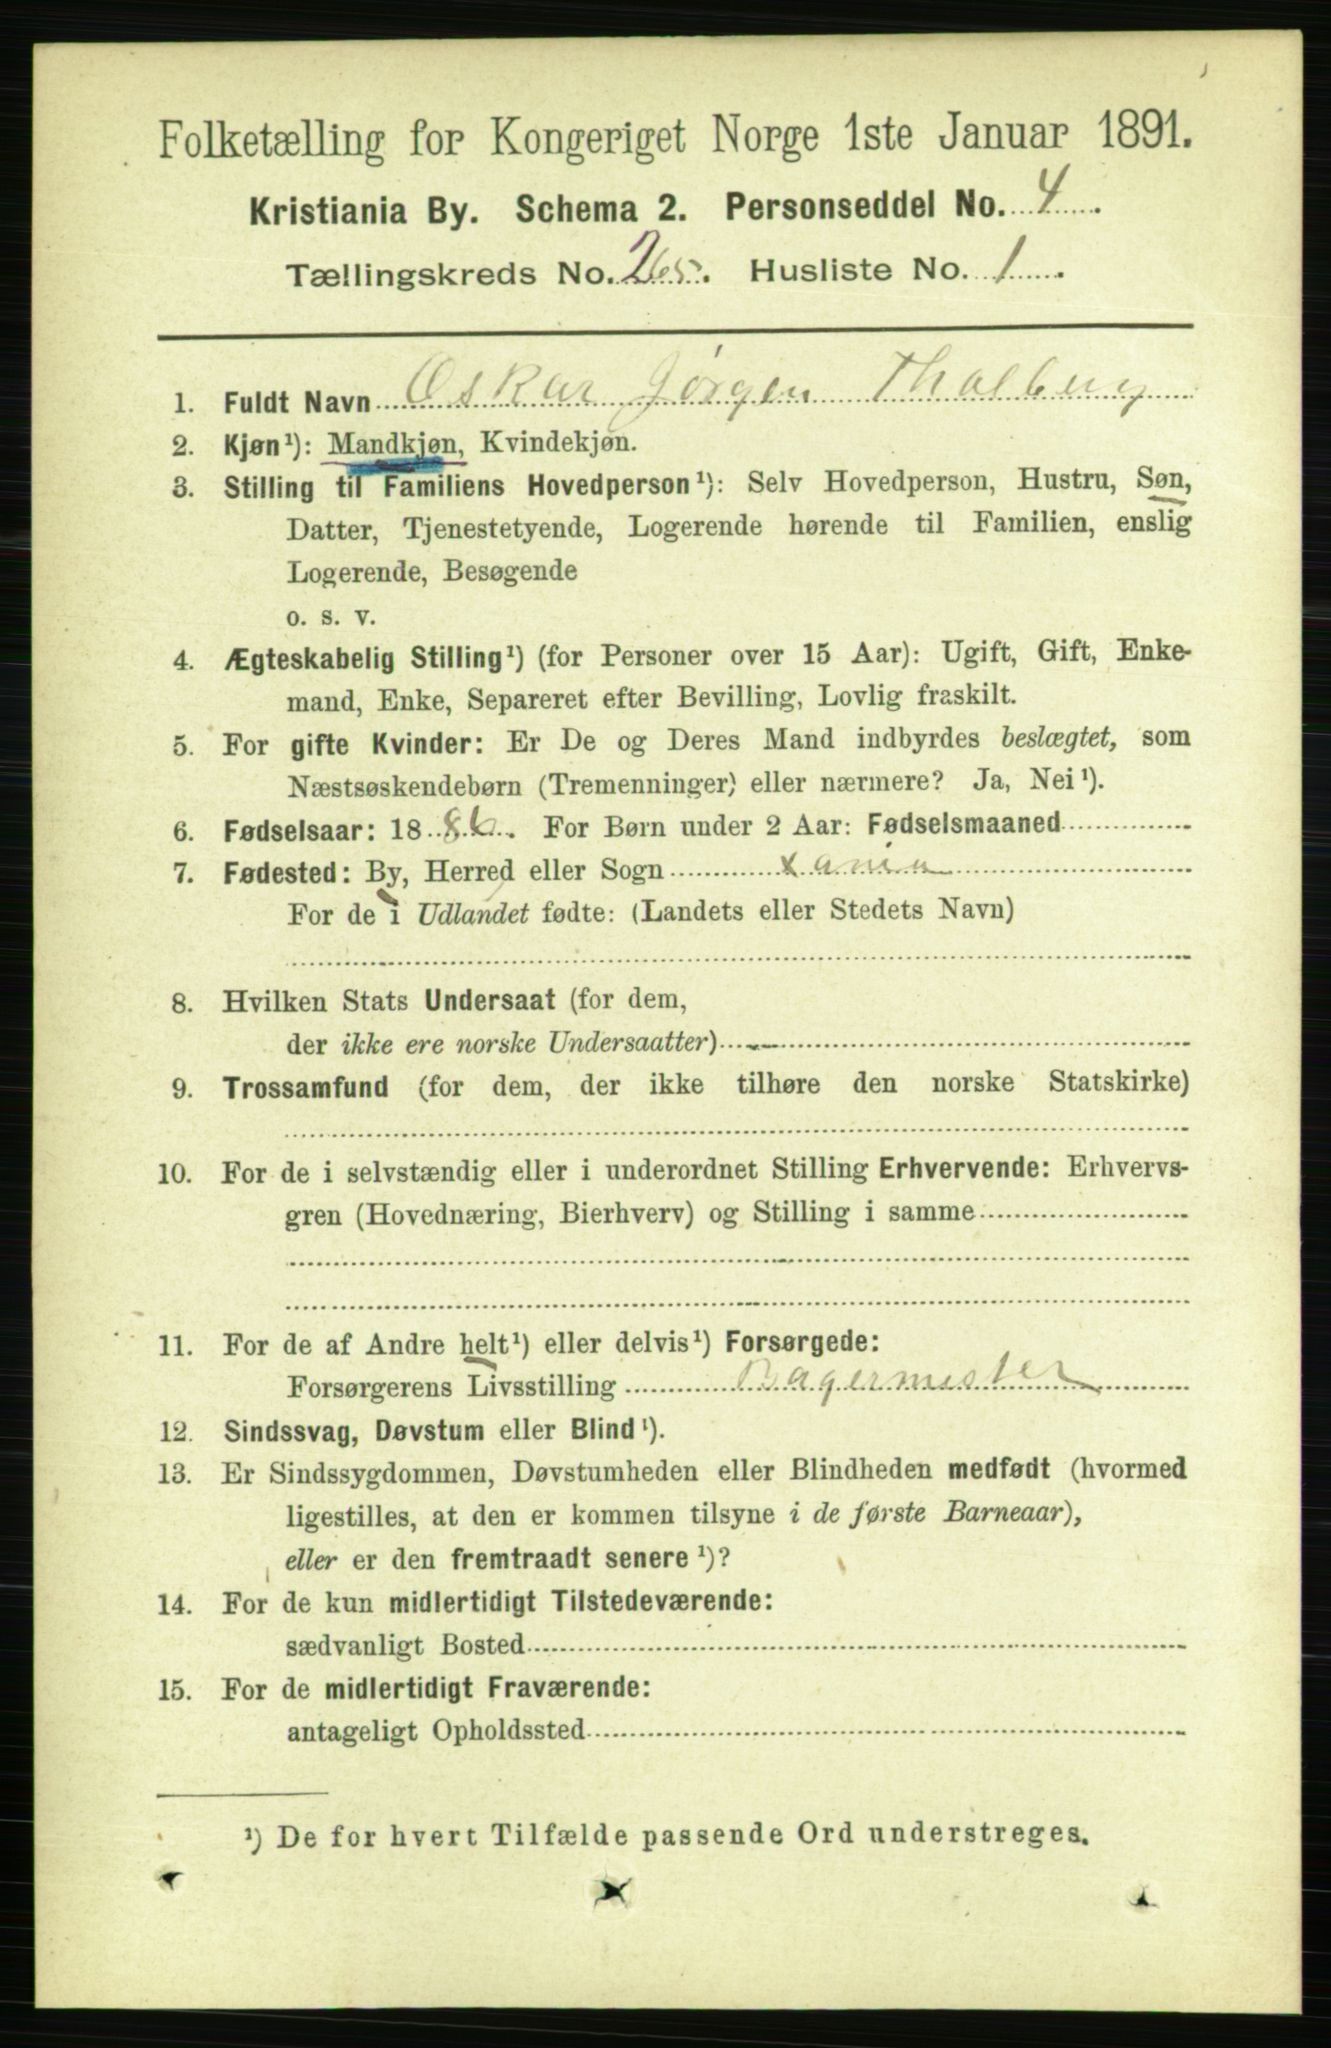 Folketælling for Kongeriget Norge 1ste Januar 1891.
Kristiania By. Schema 2. Personseddel No. 4
Tællingskreds No. 265. Husliste No. 1
1. Fuldt Navn Oskar Jørgen Thalberg
2. Kjøn¹): Mandkjøn, Kvindekjøn.
3. Stilling til Familiens Hovedperson¹): Selv Hovedperson, Hustru, Søn,
Datter, Tjenestetyende, Logerende hørende til Familien, enslig
Logerende, Besøgende
o. s. v.
4. Ægteskabelig Stilling¹) (for Personer over 15 Aar): Ugift, Gift, Enke-
mand, Enke, Separeret efter Bevilling, Lovlig fraskilt.
5. For gifte Kvinder: Er De og Deres Mand indbyrdes beslægtet, som
Næstsøskendebørn (Tremenninger) eller nærmere? Ja, Nei¹).
6. Fødselsaar: 1886. For Børn under 2 Aar: Fødselsmaaned
7. Fødested: By, Herred eller Sogn xania
For de i Udlandet fødte: (Landets eller Stedets Navn)
8. Hvilken Stats Undersaat (for dem,
der ikke ere norske Undersaatter)
9. Trossamfund (for dem, der ikke tilhøre den norske Statskirke)
10. For de i selvstændig eller i underordnet Stilling Erhvervende: Erhvervs-
gren (Hovednæring, Bierhverv) og Stilling i samme
11. For de af Andre helt¹) eller delvis¹) Forsørgede:
Forsørgerens Livsstilling Bagermester
12. Sindssvag, Døvstum eller Blind¹).
13. Er Sindssygdommen, Døvstumheden eller Blindheden medfødt (hvormed
ligestilles, at den er kommen tilsyne i de første Barneaar),
eller er den fremtraadt senere¹)?
14. For de kun midlertidigt Tilstedeværende:
sædvanligt Bosted
15. For de midlertidigt Fraværende:
antageligt Opholdssted
¹) De for hvert Tilfælde passende Ord understreges.